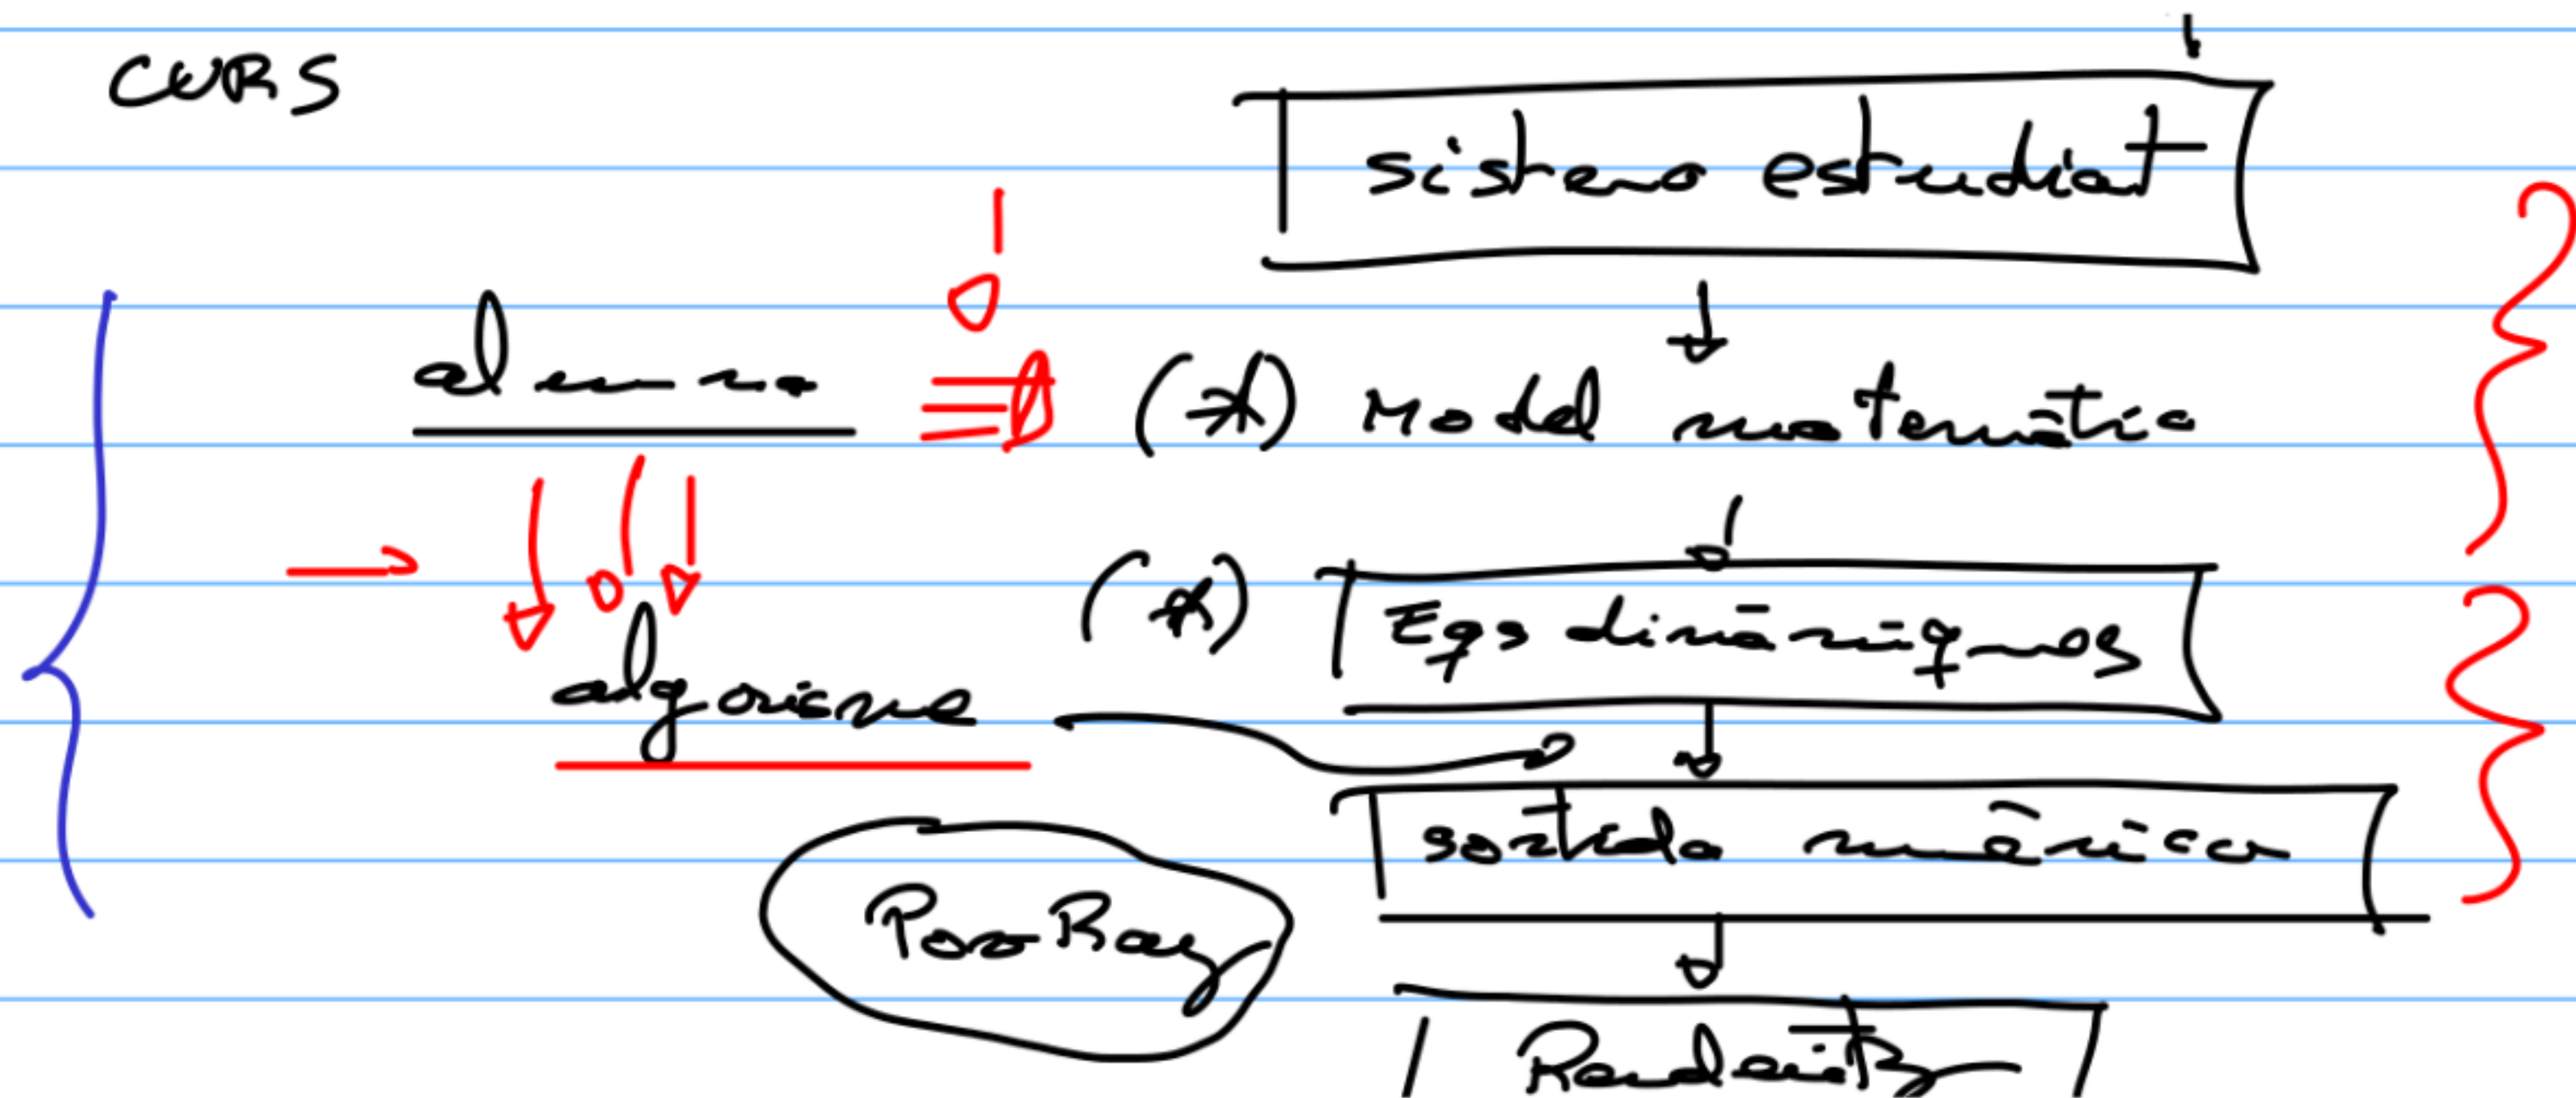 CURS
sistema estudiat
alumna (*) Model matemàtic
(*) Eqs dinàmiques
algorisme
sortida numèrica
Pov-Ray